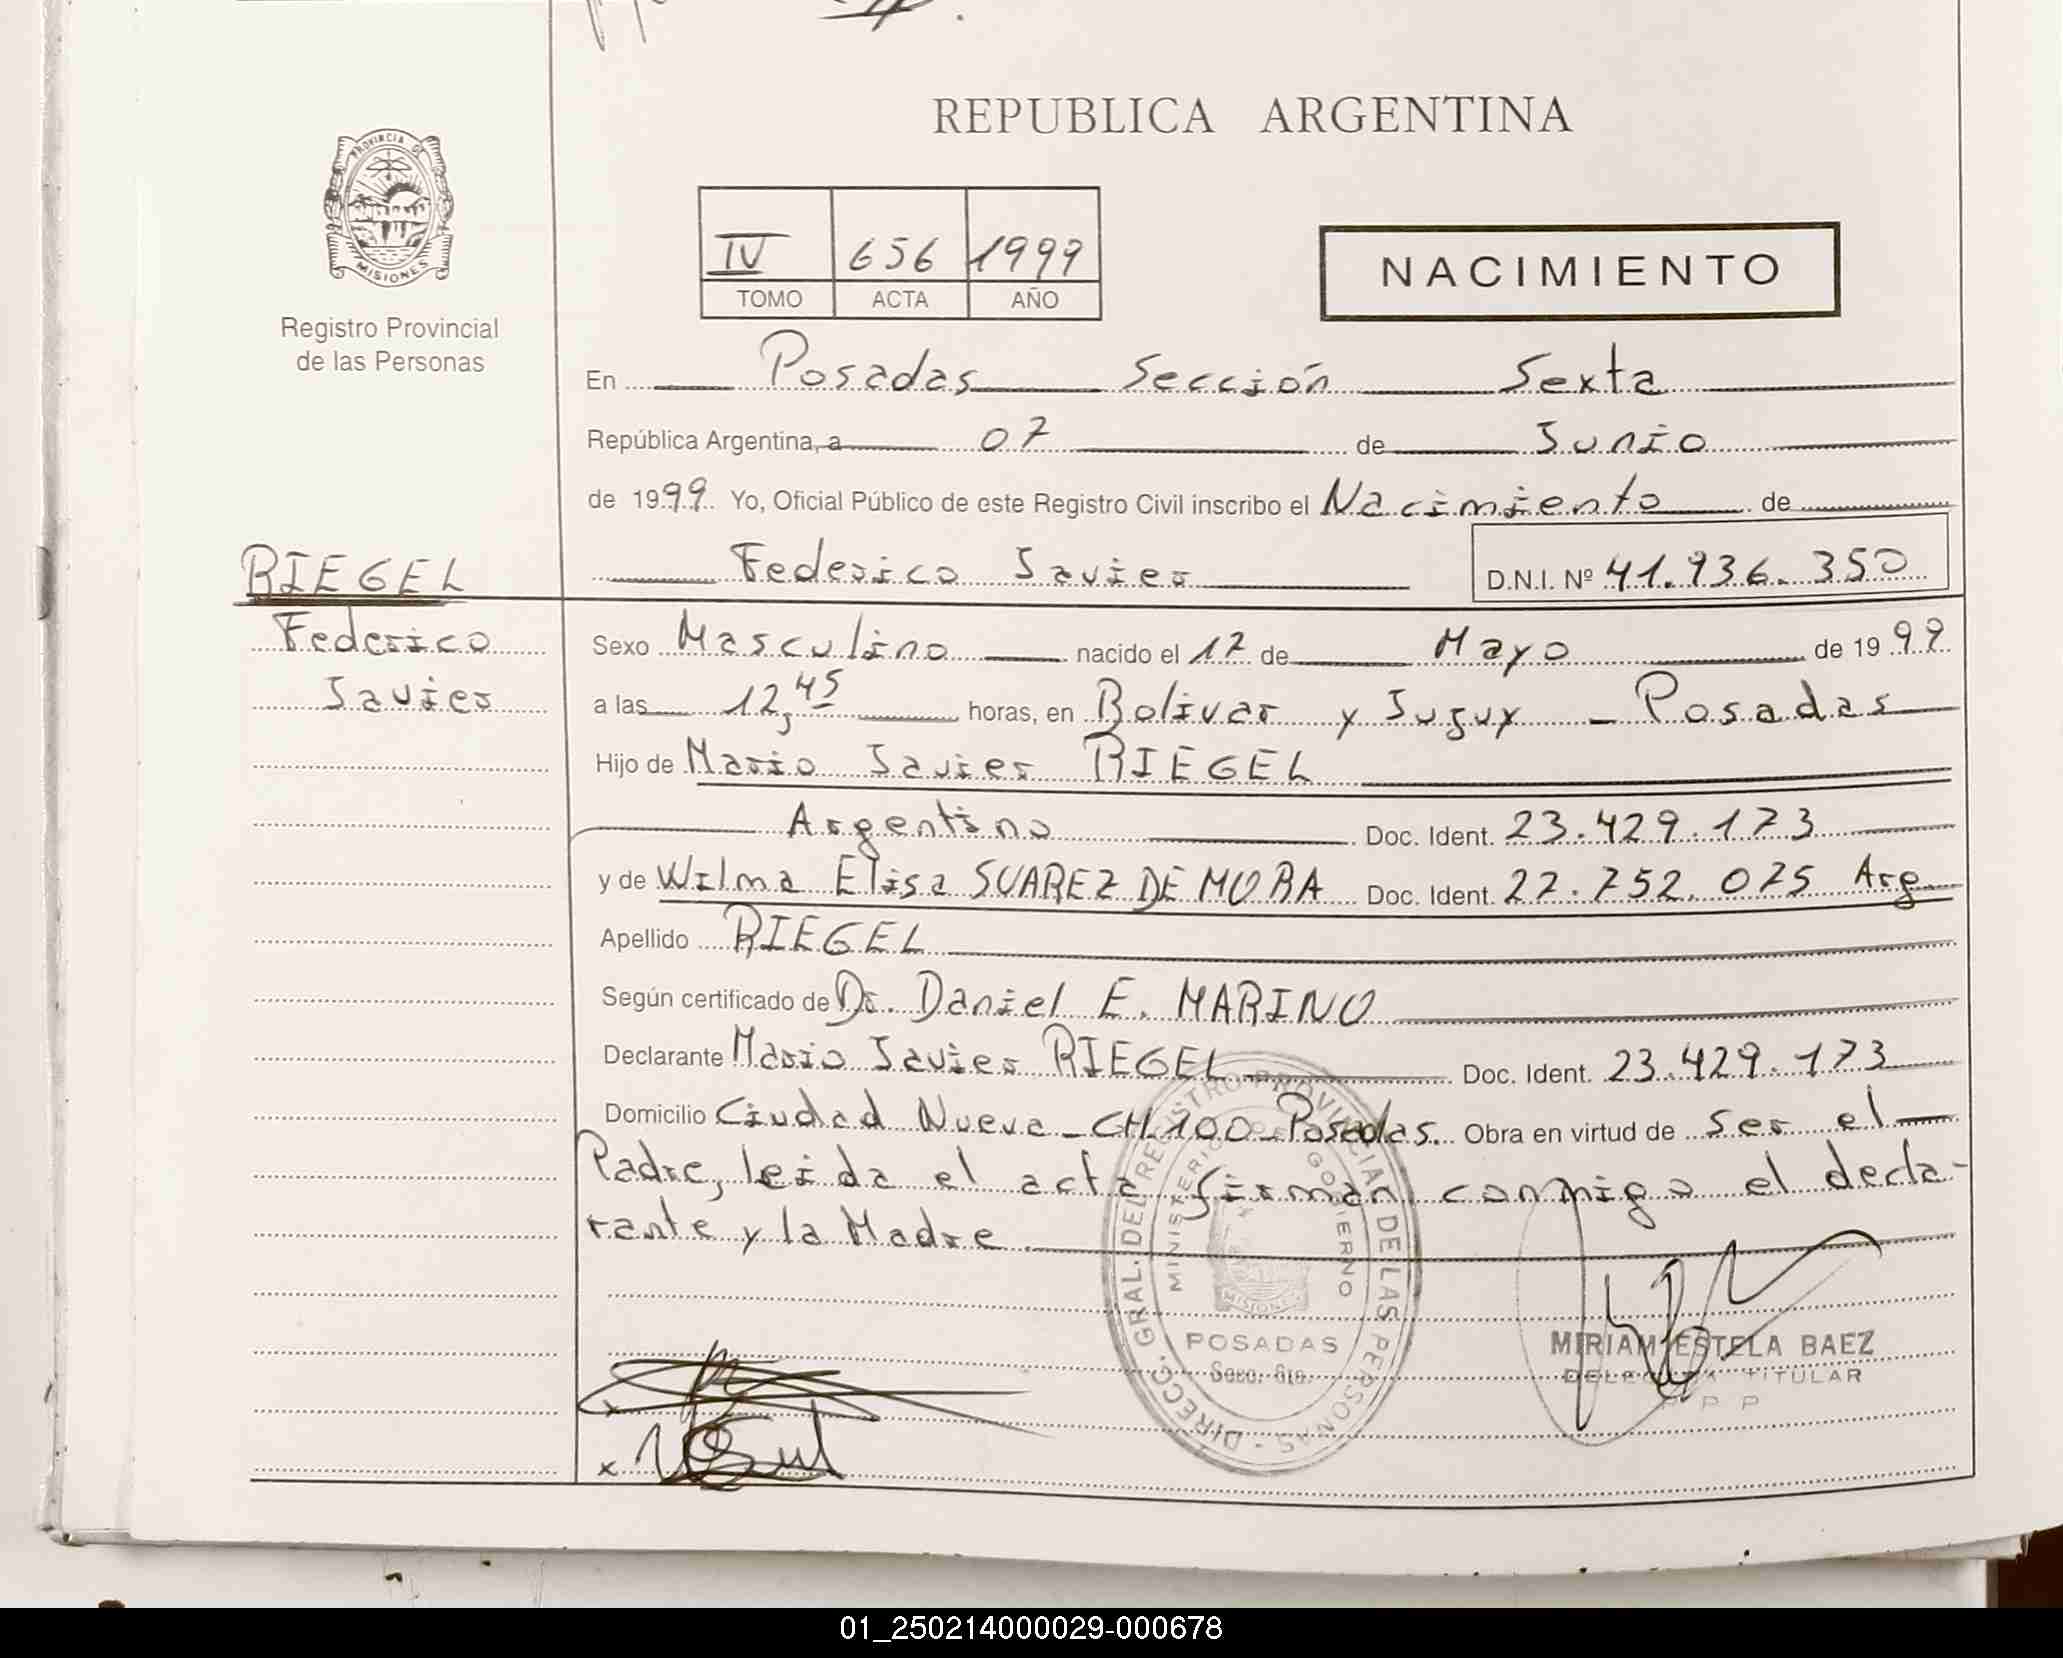 REPUBLICA ARGENTINA
PROVINCIA DE
MISIONES
Registro Provincial
de las Personas
IV 656 1999
TOMO ACTA AÑO
NACIMIENTO
En Posadas Sección Sexta
República Argentina, a 07 de Junio
de 1999 Yo, Oficial Público de este Registro Civil inscribo el Nacimiento de
RIEGEL
Federico Javier D.N.I. Nº 41.936.350
Federico
Javier
Sexo Masculino nacido el 17 de Mayo de 1999
a las 12,45 horas, en Bolivar y Jujuy - Posadas
Hijo de Mario Javier RIEGEL
Argentino Doc. Ident. 23.429.173
y de Wilma Elisa SUAREZ DE MORA Doc. Ident. 22.752.075 Arg.
Apellido RIEGEL
Según certificado de Dr. Daniel E. MARINO
Declarante Mario Javier RIEGEL Doc. Ident. 23.429.173
Domicilio Ciudad Nueva - CH 100 - Posadas. Obra en virtud de ser el
Padre, leida el acta firman conmigo el decla-
rante y la Madre.
DIRECC. GRAL. DEL REGISTRO PROVINCIAL DE LAS PERSONAS -
MINISTERIO DE GOBIERNO
MISIONES
POSADAS
Secc. 6ta.
MIRIAM ESTELA BAEZ
DELEGADA TITULAR
x
x
01_250214000029-000678